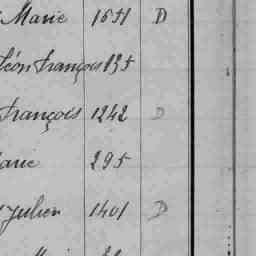 Marie 1651 D
Léon François 135
François 1242 D
arie 295
Julien 1401 D